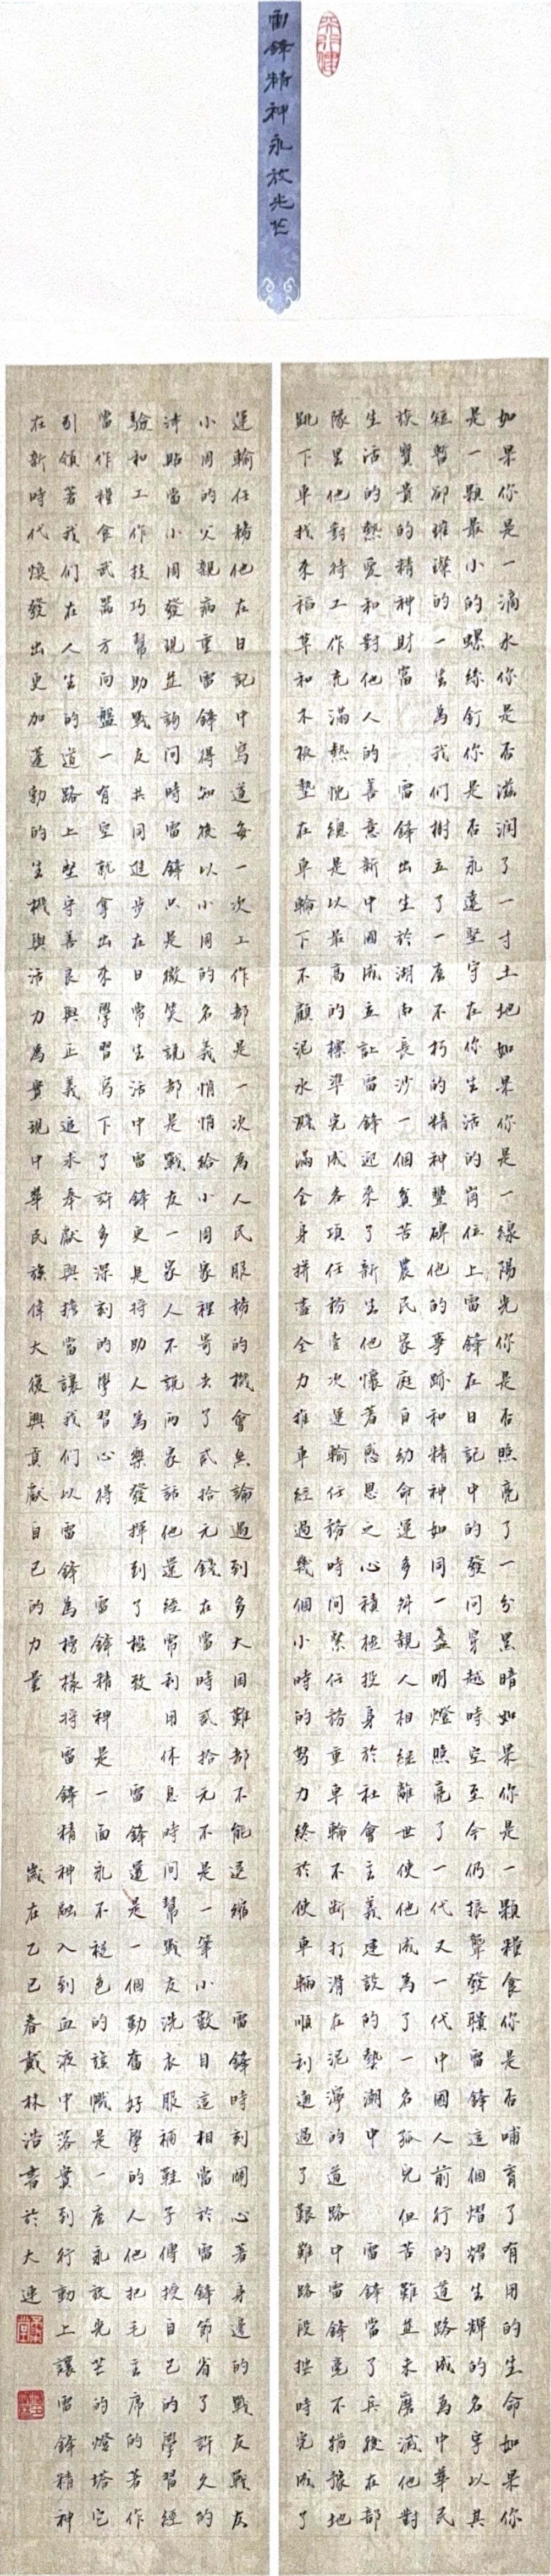 雷鋒精神永放光芒
如果你是一滴水你是否滋潤了一寸土地如果你是一線陽光你是否照亮了一分黑暗如果你是一顆糧食你是否哺育了有用的生命如果你
是一顆最小的螺絲釘你是否永遠堅守在你生活的崗位上雷鋒在日記中的發問穿越時空至今仍振聾發聵雷鋒這個熠熠生輝的名字以其
短暫卻璀璨的一生為我們樹立了一座不朽的精神豐碑他的事跡和精神如同一盞明燈照亮了一代又一代中國人前行的道路成為中華民
族寶貴的精神財富 雷鋒出生於湖南長沙一個貧苦農民家庭自幼命運多舛親人相繼離世使他成為了一名孤兒但苦難並未磨滅他對
生活的熱愛和對他人的善意新中國成立讓雷鋒迎來了新生他懷著感恩之心積極投身於社會主義建設的熱潮中 雷鋒當了兵後在部
隊里他對待工作充滿熱忱總是以最高的標準完成各項任務壹次運輸任務時間緊任務重車輪不斷打滑在泥濘的道路中雷鋒毫不猶豫地
跳下車找來稻草和木板墊在車輪下不顧泥水濺滿全身拼盡全力推車經過幾個小時的努力終於使車輛順利通過了艱難路段按時完成了
運輸任務他在日記中寫道每一次工作都是一次為人民服務的機會無論遇到多大困難都不能退縮 雷鋒時刻關心著身邊的戰友戰友
小周的父親病重雷鋒得知後以小周的名義悄悄給小周家裡寄去了貳拾元錢在當時貳拾元不是一筆小數目這相當於雷鋒節省了許久的
津貼當小周發現並詢問時雷鋒只是微笑說都是戰友一家人不說兩家話他還經常利用休息時間幫戰友洗衣服補鞋子傳授自己的學習經
驗和工作技巧幫助戰友共同進步在日常生活中雷鋒更是將助人為樂發揮到了極致 雷鋒還是一個勤奮好學的人他把毛主席的著作
當作糧食武器方向盤一有空就拿出來學習寫下了許多深刻的學習心得 雷鋒精神是一面永不褪色的旗幟是一座永放光芒的燈塔它
引領著我們在人生的道路上堅守善良與正義追求奉獻與擔當讓我們以雷鋒為榜樣將雷鋒精神融入到血液中落實到行動上讓雷鋒精神
在新時代煥發出更加蓬勃的生機與活力為實現中華民族偉大復興貢獻自己的力量
歲在乙巳春戴林浩書於大連